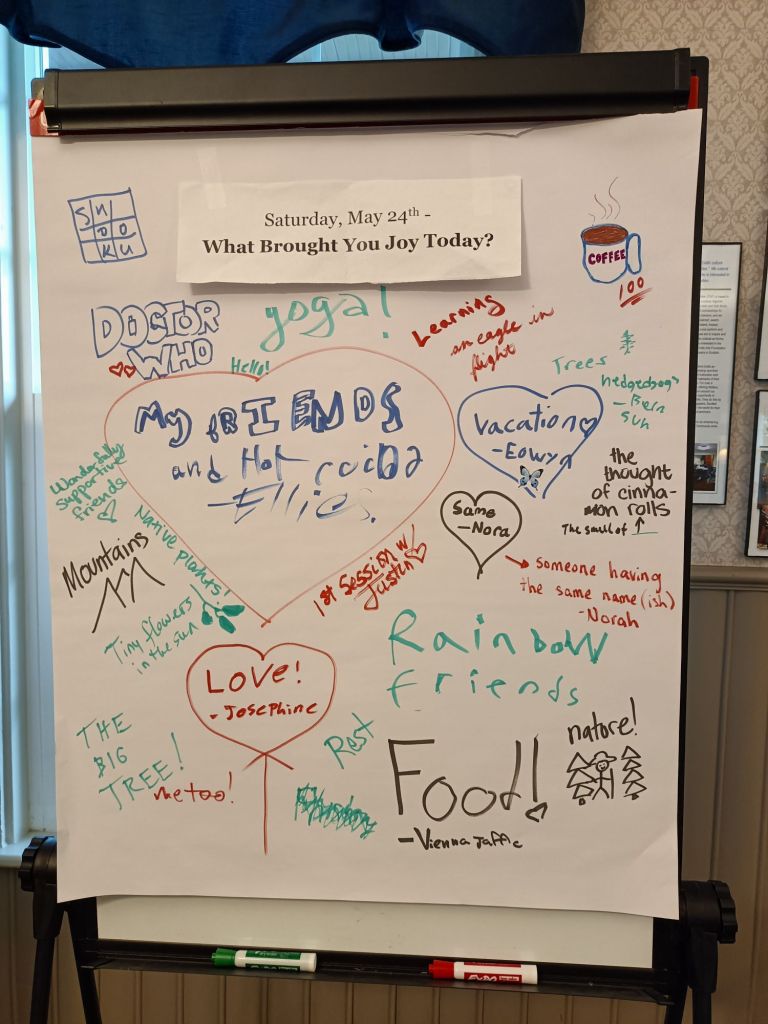 SU
DO
KU
Saturday, May 24th -
What Brought You Joy Today?
COFFEE
100
DOCTOR
WHO
yoga!
Learning
an eagle in
flight
Hello!
Trees
hedgehogs
- Bern
sun
My fRIENDS
and Hot
-Ellie
vacation
-Eowyn
the
thought
of cinna-
mon rolls
The smell of ↑
Wonderfully
supportive
friends
Same
-Nora
Native plants!
Mountains
1st Session w/
Justin
→ someone having
the same name (ish)
-Norah
Tiny flowers
in the sun
Rainbow
friends
LOVE!
- Josephine
THE
BIG
TREE!
me too!
Rest
nature!
Food!
-Vienna